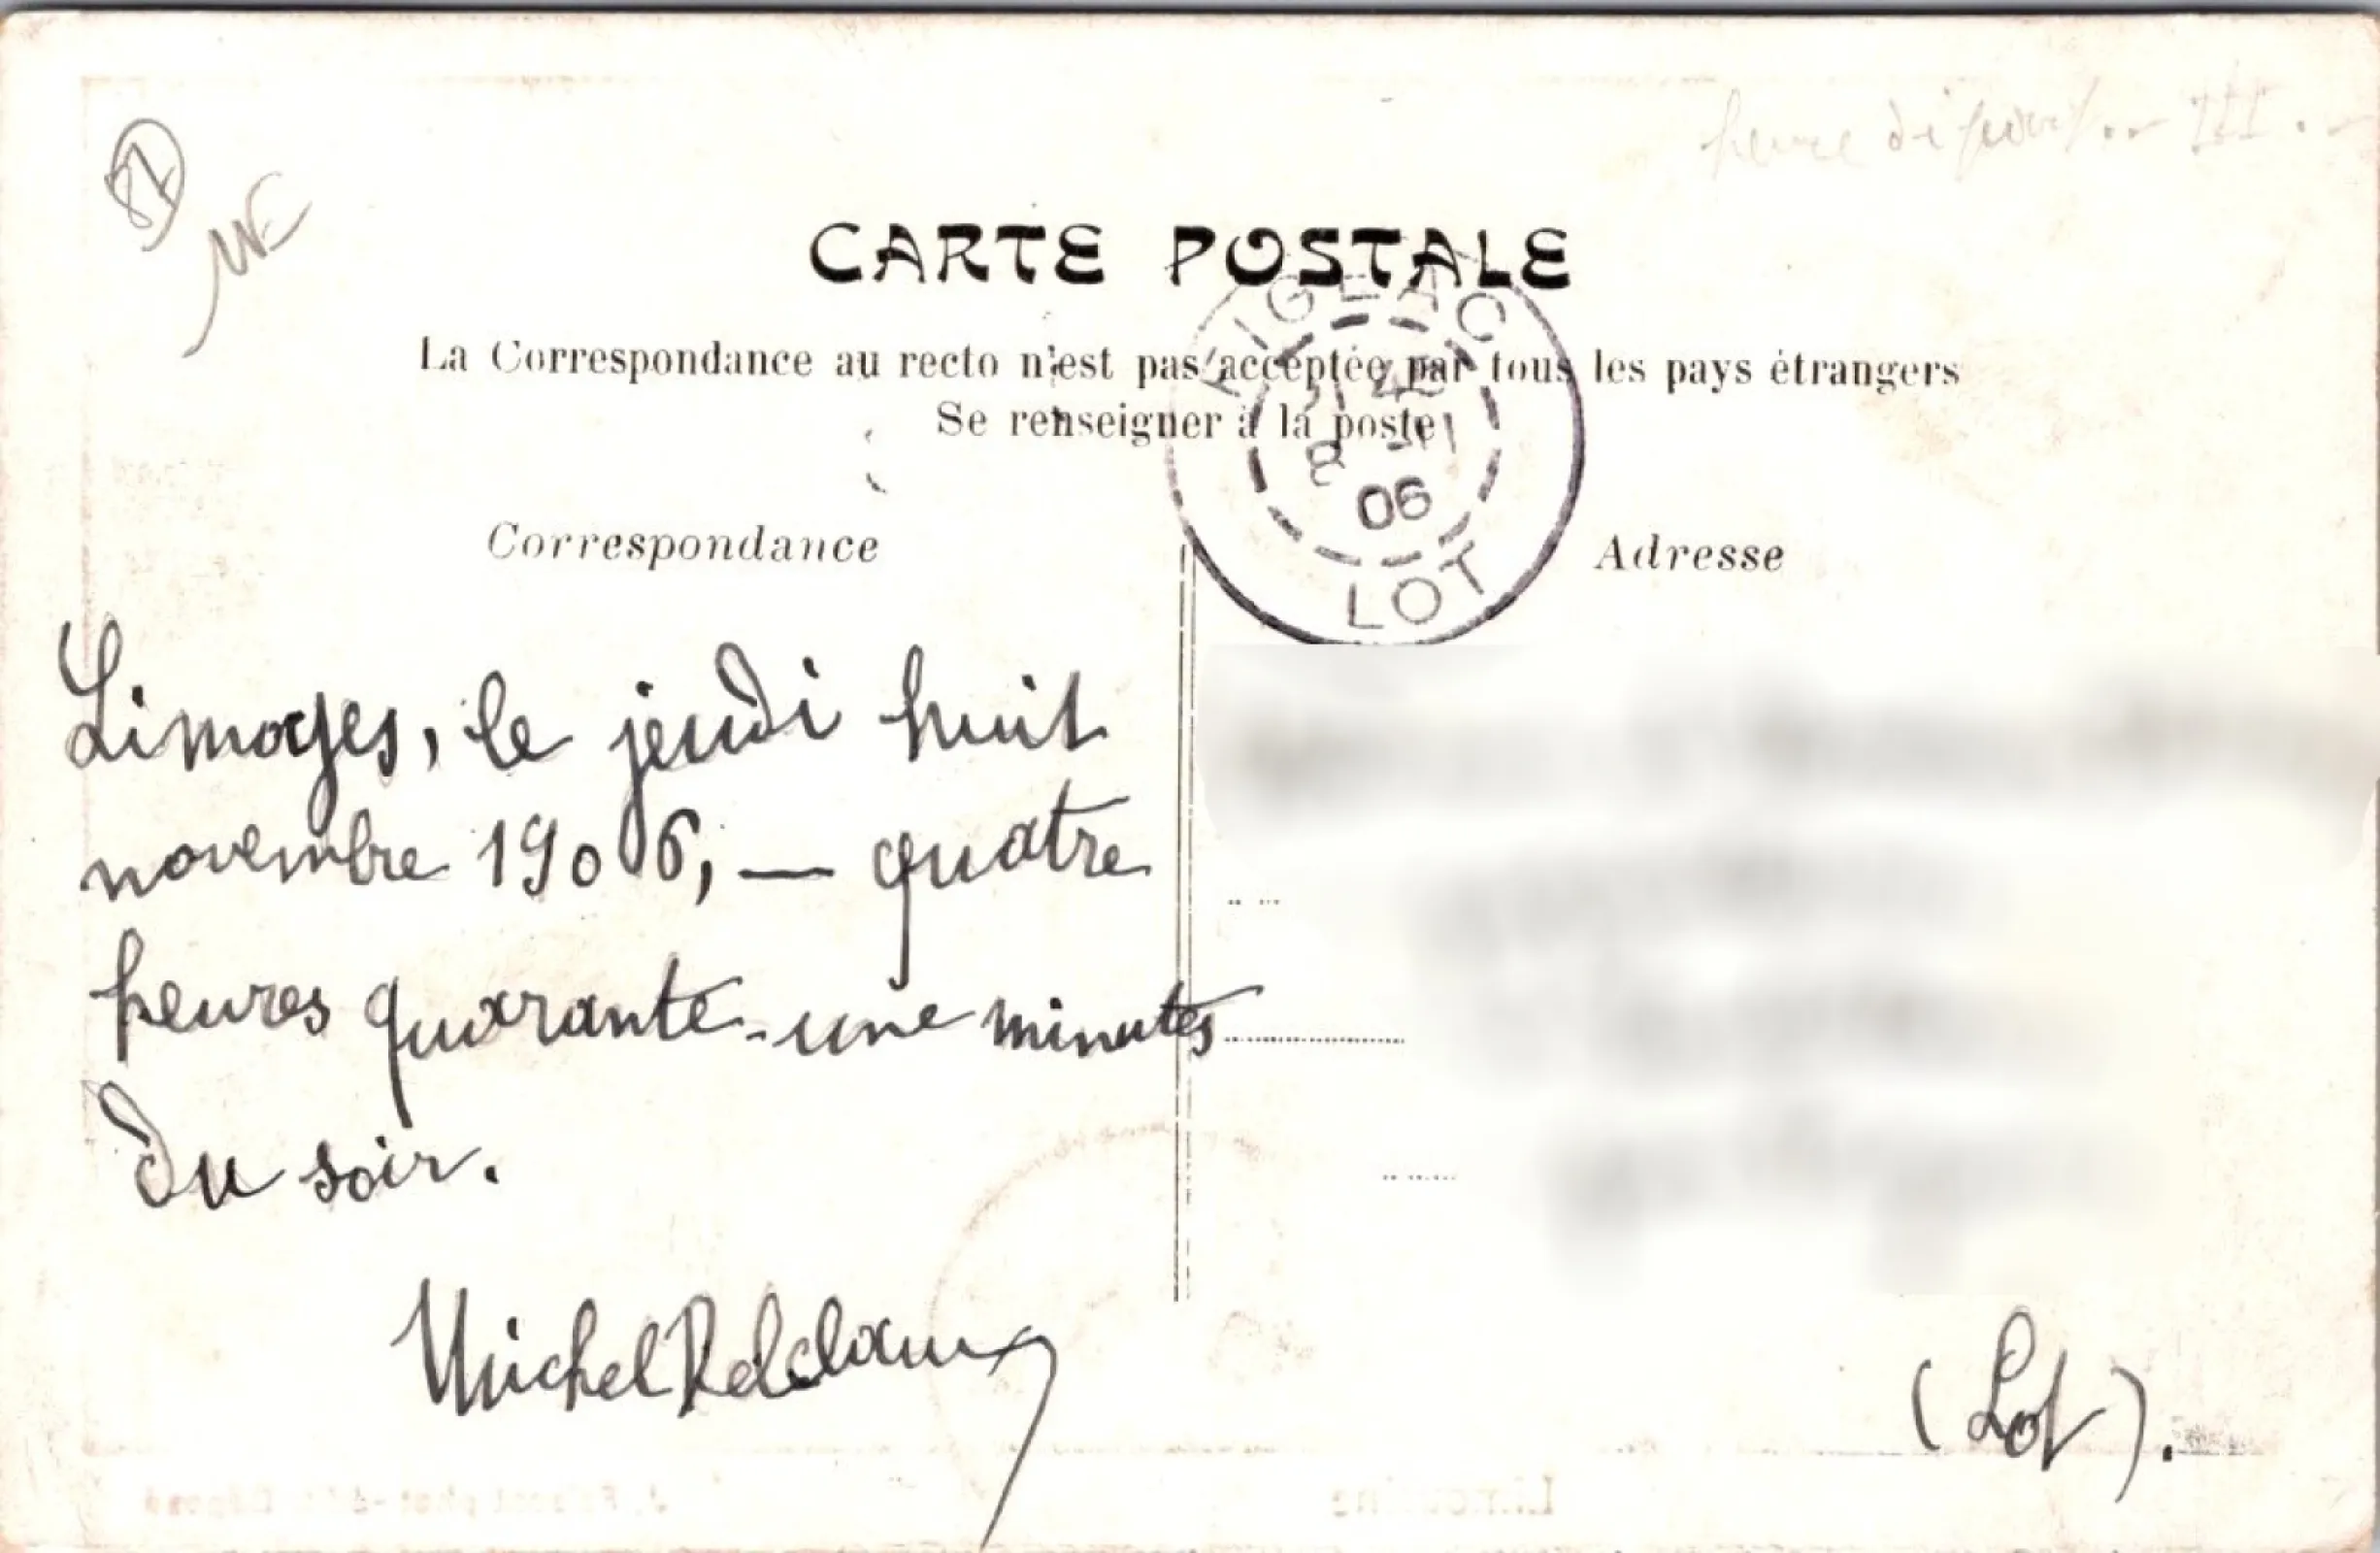 87
CARTE POSTALE
La Correspondance au recto n'est pas acceptée par tous les pays étrangers
Se renseigner à la poste
FIGEAC
8 -11
06
LOT
Correspondance
Adresse
Limoges, le jeudi huit
novembre 1906, — quatre
heures quarante-une minutes
du soir.
Michel
(Lot).